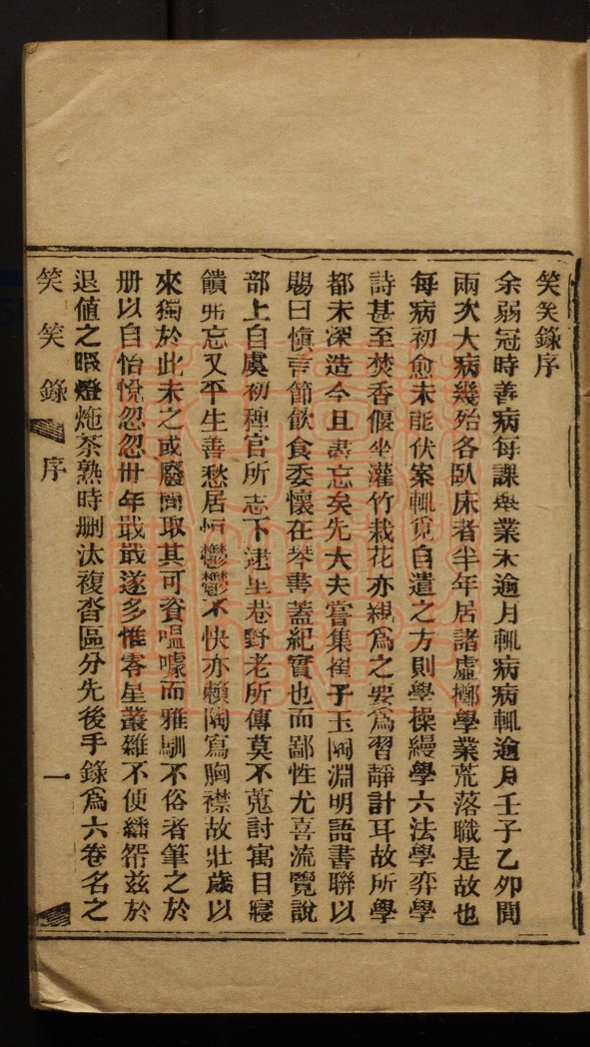 笑笑錄序
余弱冠時善病每課舉業未逾月輒病病輒逾月壬子乙卯間
兩次大病幾殆各臥床者半年居諸虛擲學業荒落職是故也
每病初愈未能伏案輒覓自遣之方則學操縵學六法學弈學
詩甚至焚香偃坐灌竹栽花亦親為之要為習靜計耳故所學
都未深造今且盡忘矣先大夫嘗集崔子玉陶淵明語書聯以
賜曰慎言節飲食委懷在琴書蓋紀實也而鄙性尤喜流覽說
部上自虞初稗官所志下逮里巷野老所傳莫不蒐討寓目寢
饋弗忘又平生善愁居恒鬱鬱不快亦賴陶寫胸襟故壯歲以
來獨於此未之或廢間取其可資嗢噱而雅馴不俗者筆之於
册以自怡悅忽忽卅年戢戢遂多惟零星叢雜不便繙帋茲於
退值之暇燈炧茶熟時删汰複沓區分先後手錄為六卷名之
笑笑錄 序 一